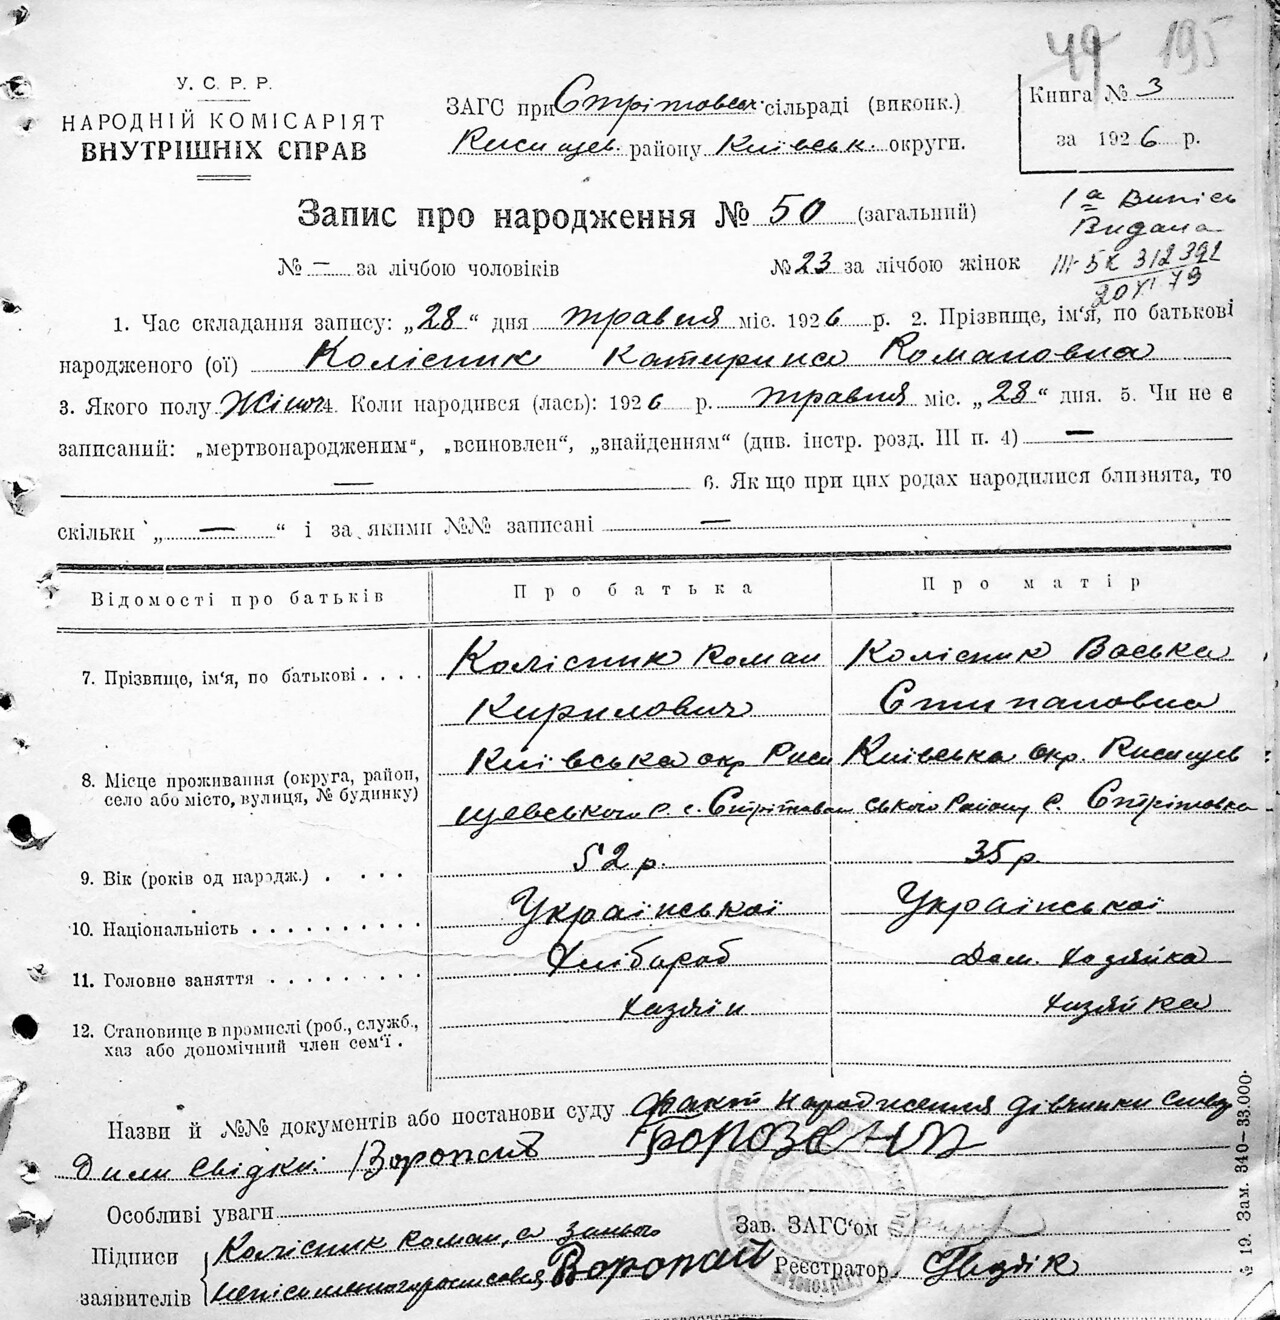 49 195
У. С. Р. Р.
НАРОДНІЙ КОМІСАРІЯТ
ВНУТРІШНІХ СПРАВ
ЗАГС при Стрітовськ. сільраді (виконк.)
Ржищев. району Київськ. округи.
Книга № 3
за 1926 р.
Запис про народження № 50 (загальний)
1а Випись
Видана
№ — за лічбою чоловіків № 23 за лічбою жінок
III-БК 312392
20 XI 79
1. Час складання запису: „28“ дня травня міс. 1926 р. 2. Прізвище, ім'я, по батькові
народженого (ої) Колісник Катирина Романовна
3. Якого полу Жіноч 4. Коли народився (лась): 1926 р. травня міс. „28“ дня. 5. Чи не є
записаний: „мертвонародженим“, „всиновлен“, „знайденням“ (див. інстр. розд. III п. 4) —
— 6. Якщо при цих родах народилися близнята, то
скільки „—“ і за якими №№ записані —
Відомості про батьків Про батька Про матір
7. Прізвище, ім'я, по батькові . . . . Колісник Роман Колісник Васька
Кирилович Стипановна
8. Місце проживання (округа, район, село або місто, вулиця, № будинку) Київська окр Ржи Київська окр. Ржищев
щевського р. с. Стрітовка ського Району с. Стрітовка
9. Вік (років од народж.) . . . . . 52 р. 35 р.
10. Національність . . . . . . . . . . Української Української
11. Головне заняття . . . . . . . . . Хлібороб Дом. Хозяйка
12. Становище в промислі (роб., служб., хаз або допомічний член сем'ї . Хазяін Хазяйка
Назви й №№ документів або постанови суду Факт народження дівчинки
Дили свідки: Воропай
Особливі уваги
Зав. ЗАГС'ом
Підписи заявителів Колісник Роман, а за нього
непісьменого росписався Воропай
Реєстратор Гвздік
№ 19. Зам. 340—33.000.